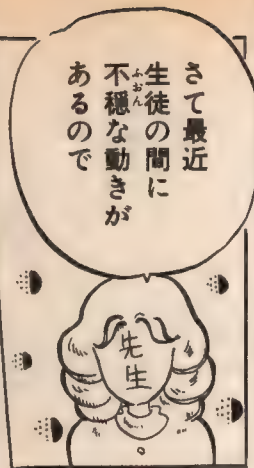 さて最近
生徒の間に
不穏な動きが
あるので
ふおん
先生